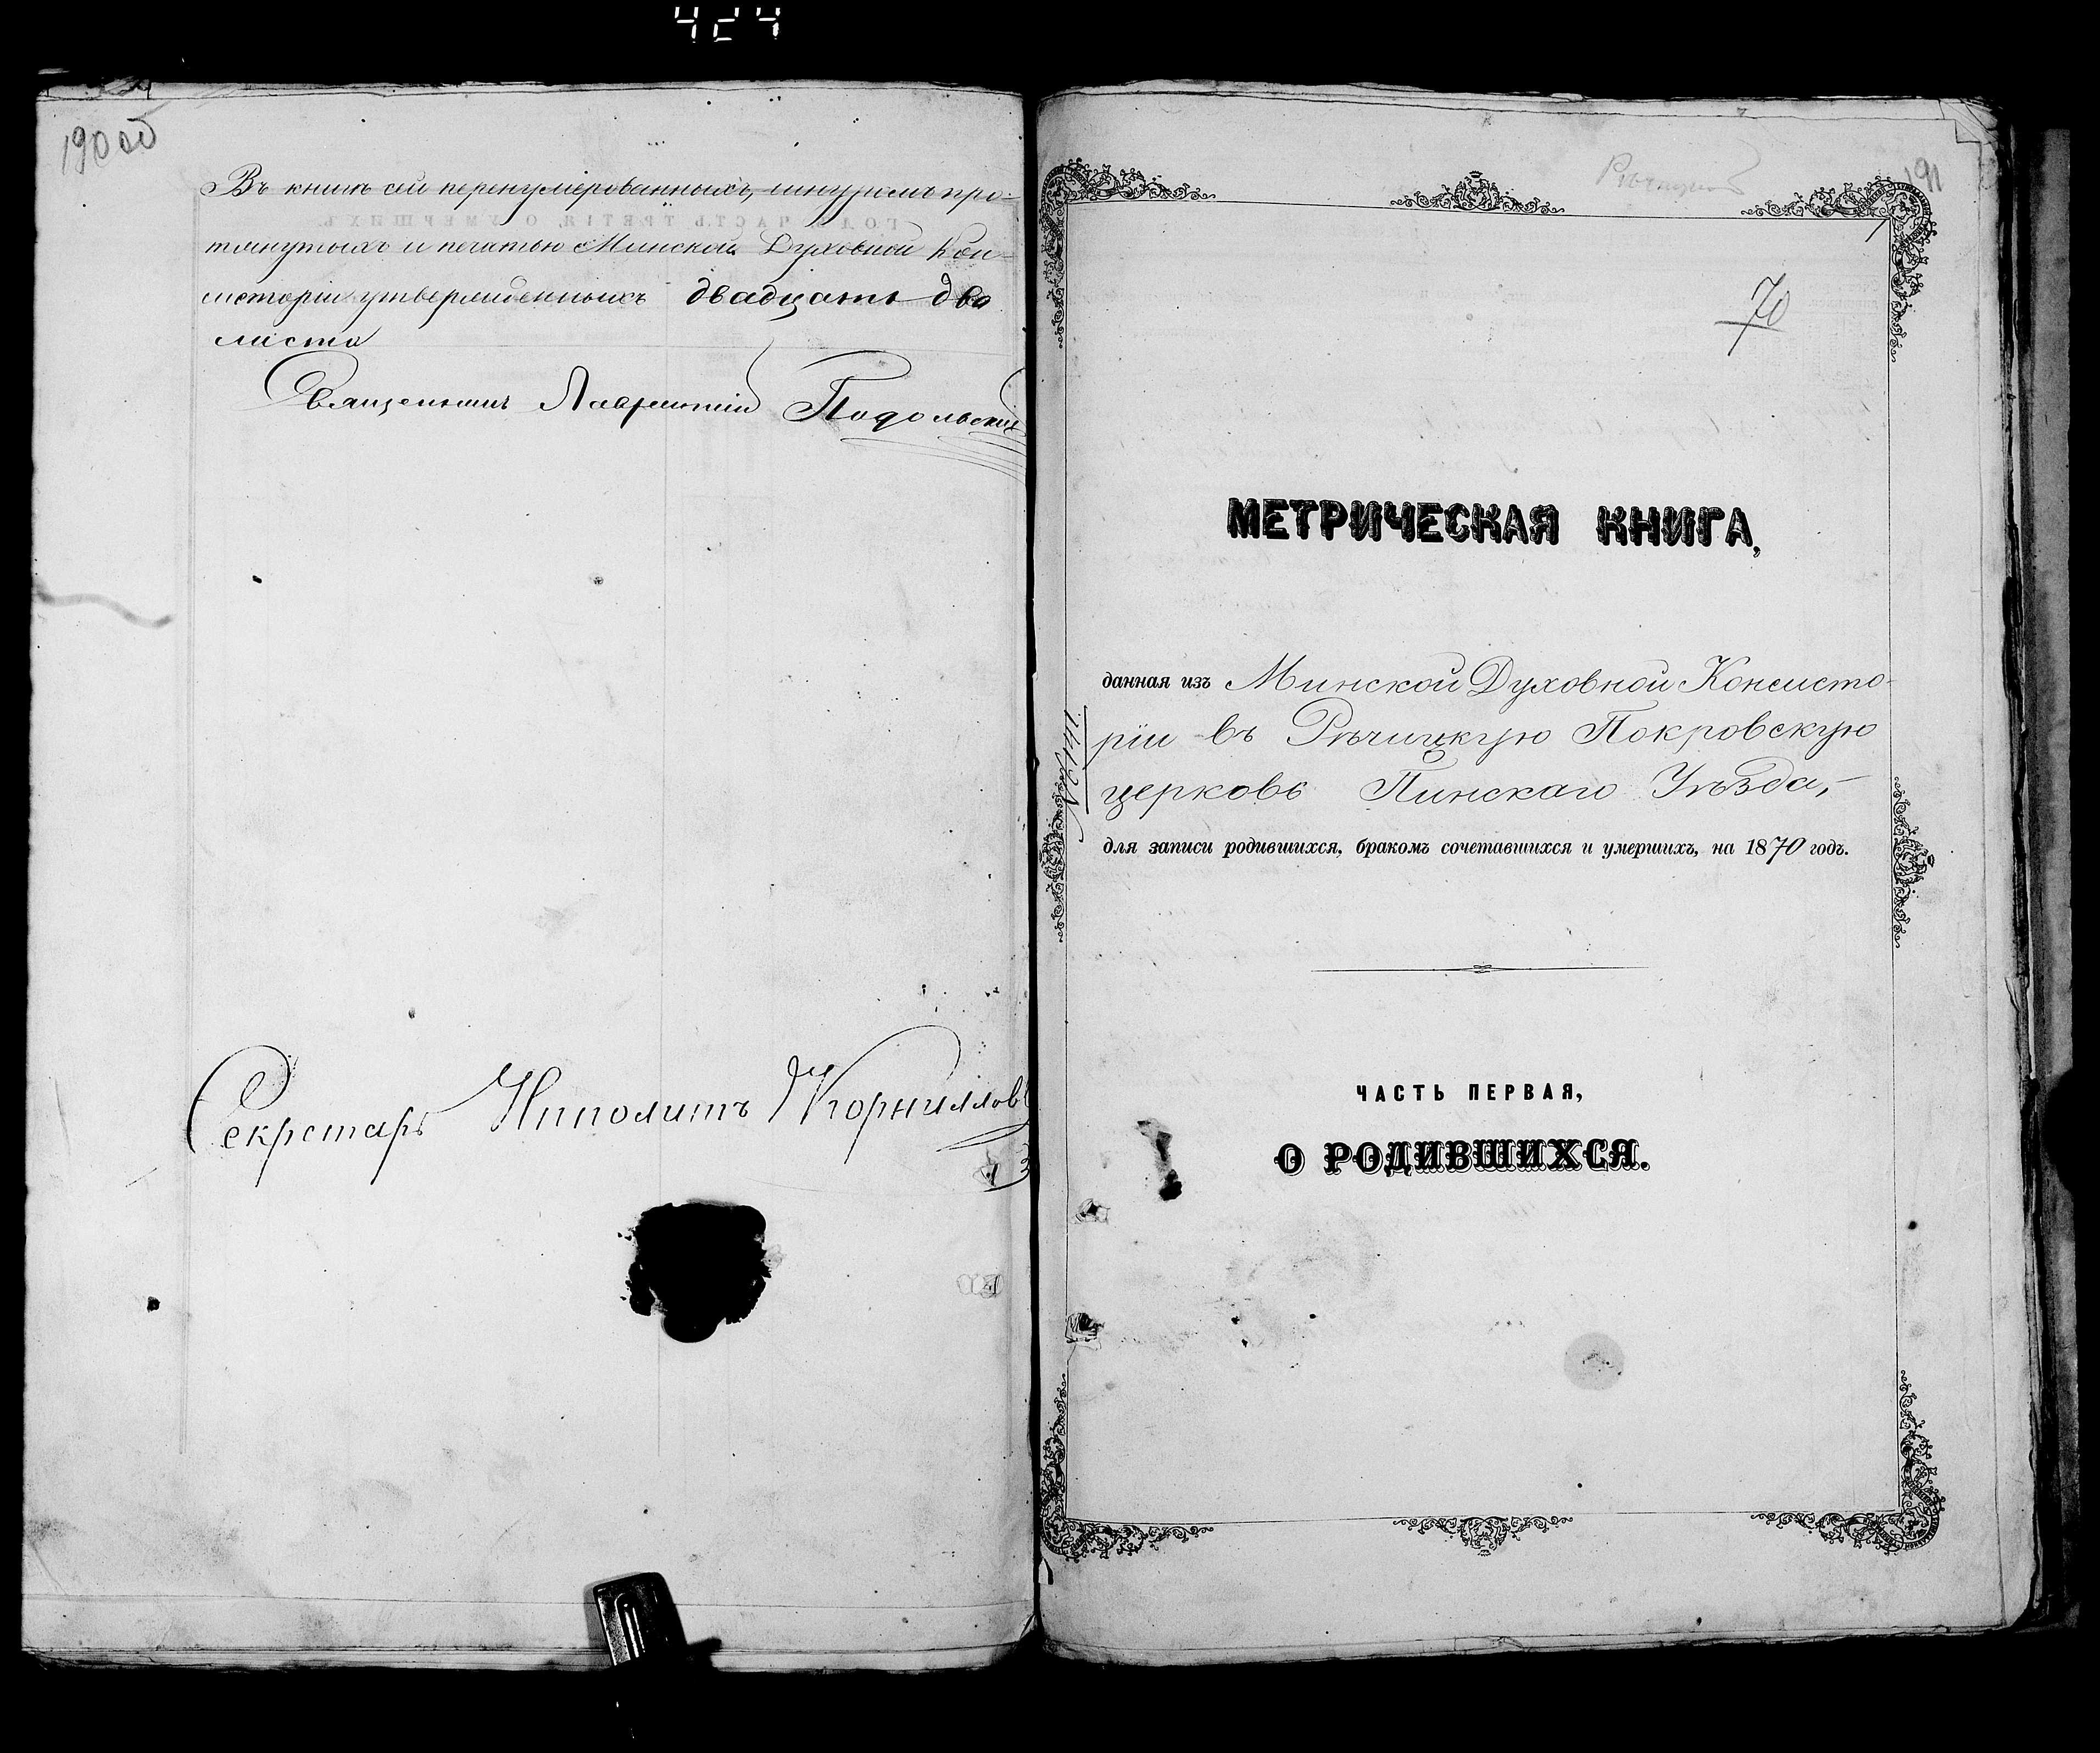 424
190 об
Въ книгѣ сей перенумерованныхъ, шнуромъ про-
тянутыхъ и печатью Минской Духовной Кон-
систоріи утвержденныхъ двадцать два
листа
Священникъ Лаврентій Подольскій
Секретарь Ипполитъ Корниллов
191
70
МЕТРИЧЕСКАЯ КНИГА,
данная изъ Минской Духовной Консисто-
ріи въ Рѣчицкую Покровскую
церковь Пинскаго Уѣзда,
для записи родившихся, бракомъ сочетавшихся и умершихъ, на 1870 годъ.
ЧАСТЬ ПЕРВАЯ,
О РОДИВШИХСЯ.